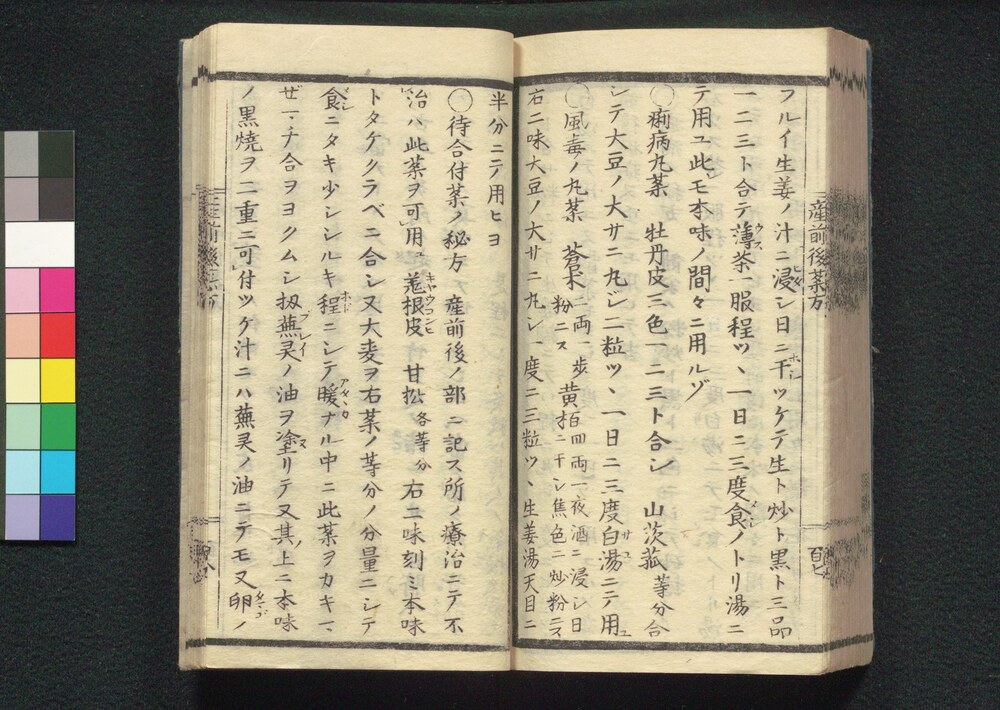 フルイ生姜ノ汁ニ浸シ日ニ干ツケテ生ト炒ト黒ト三品
一二三ト合テ薄茶一服程ツヽ一日ニ三度食ノトリ湯ニ
テ用ユ此モ本味ノ間々ニ用ルゾ
〇痢病丸薬 牡丹皮三色一二三ト合シ 山茨菰等分合
シテ大豆ノ大サニ丸ジ二粒ツヽ一日ニ三度白湯ニテ用ユ
〇風毒ノ丸薬 蒼朮二両一歩粉ニス 黄柏四両一夜酒ニ浸シ日ニ干シ焦色ニ炒粉ニス
右二味大豆ノ大サニ丸シ一度ニ三粒ツヽ生姜湯天目ニ
半分ニテ用ヒヨ
〇待合付薬ノ秘方 産前後ノ部ニ記ス所ノ療治ニテ不
治ハ此薬ヲ可用 根皮 甘松各等分 右二味刻ミ本味
トタケクラベニ合シ又大麦ヲ右薬ノ等分ノ分量ニシテ
食ニタキ少シシルキ程ニシテ暖ナル中ニ此薬ヲカキ一、
ゼ一、チ合ヲヨクムシ扨蕪ノ油ヲ塗リテ又其上ニ本味
ノ黒焼ヲ二重ニ可付ツケ汁ニハ蕪ノ油ニテモ又卵ノ
産前後薬方